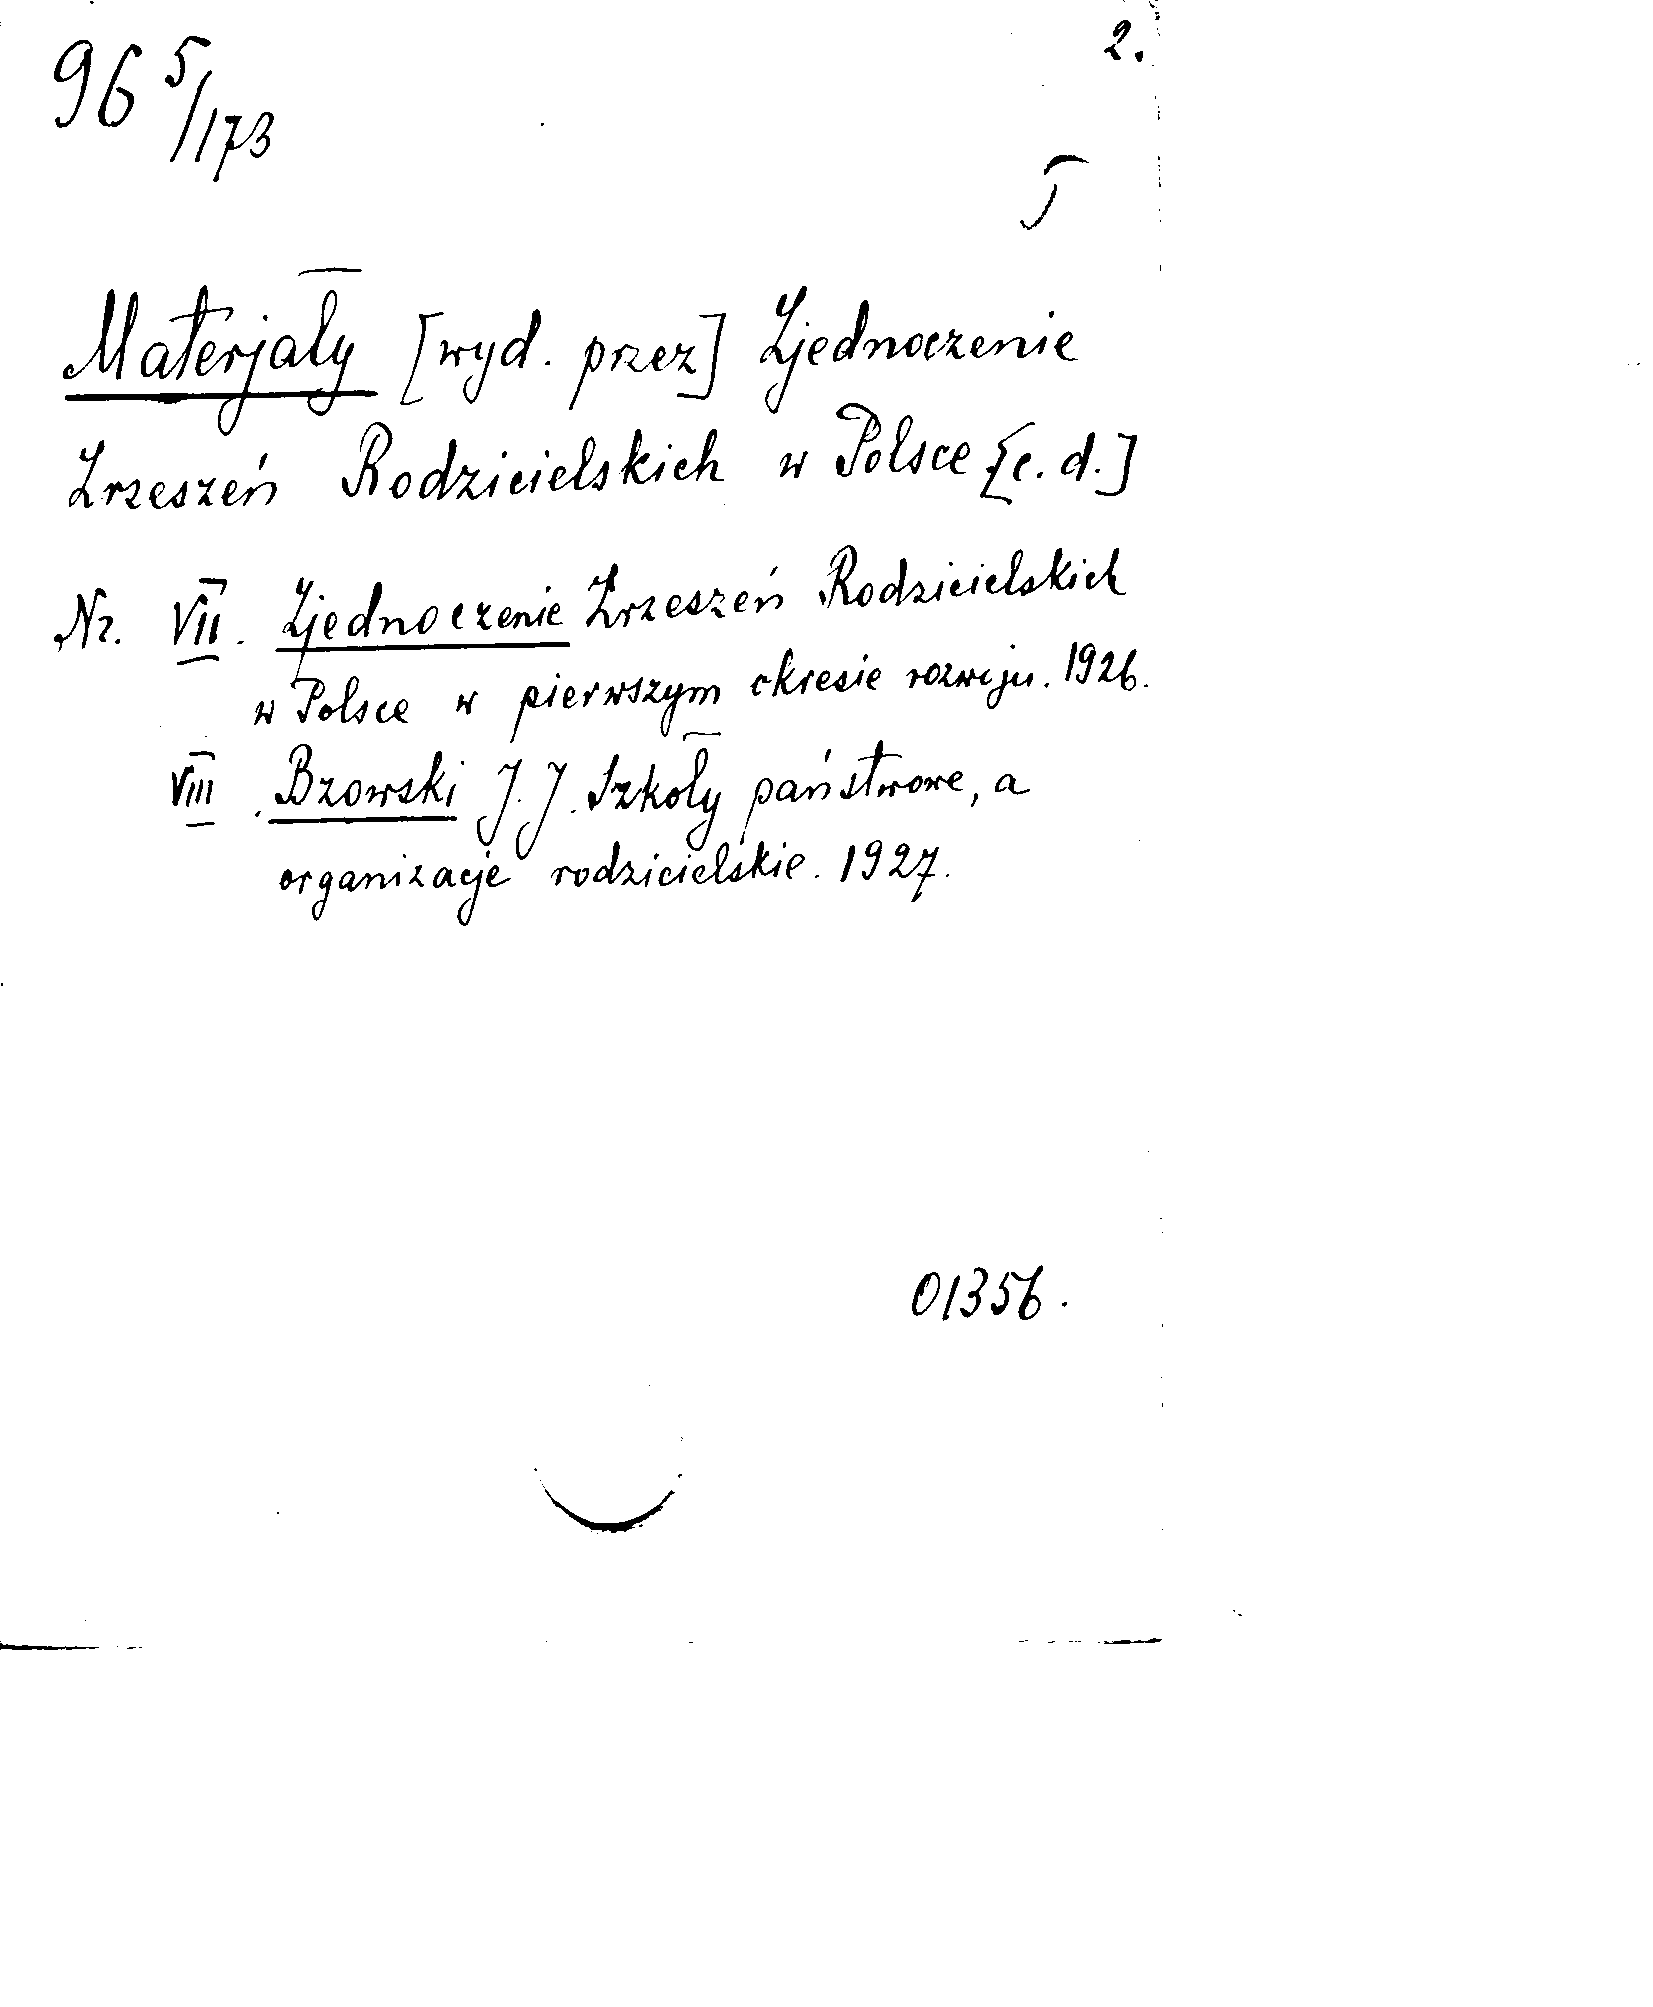 2.
96 5/173
J
Materjały [wyd. przez] Zjednoczenie
Zrzeszeń Rodzicielskich w Polsce [c. d.]
Nr. VII. Zjednoczenie Zrzeszeń Rodzicielskich
w Polsce w pierwszym okresie rozwoju. 1926.
VIII. Bzowski J. J. Szkoły państwowe, a
organizacje rodzicielskie. 1927.
01356.